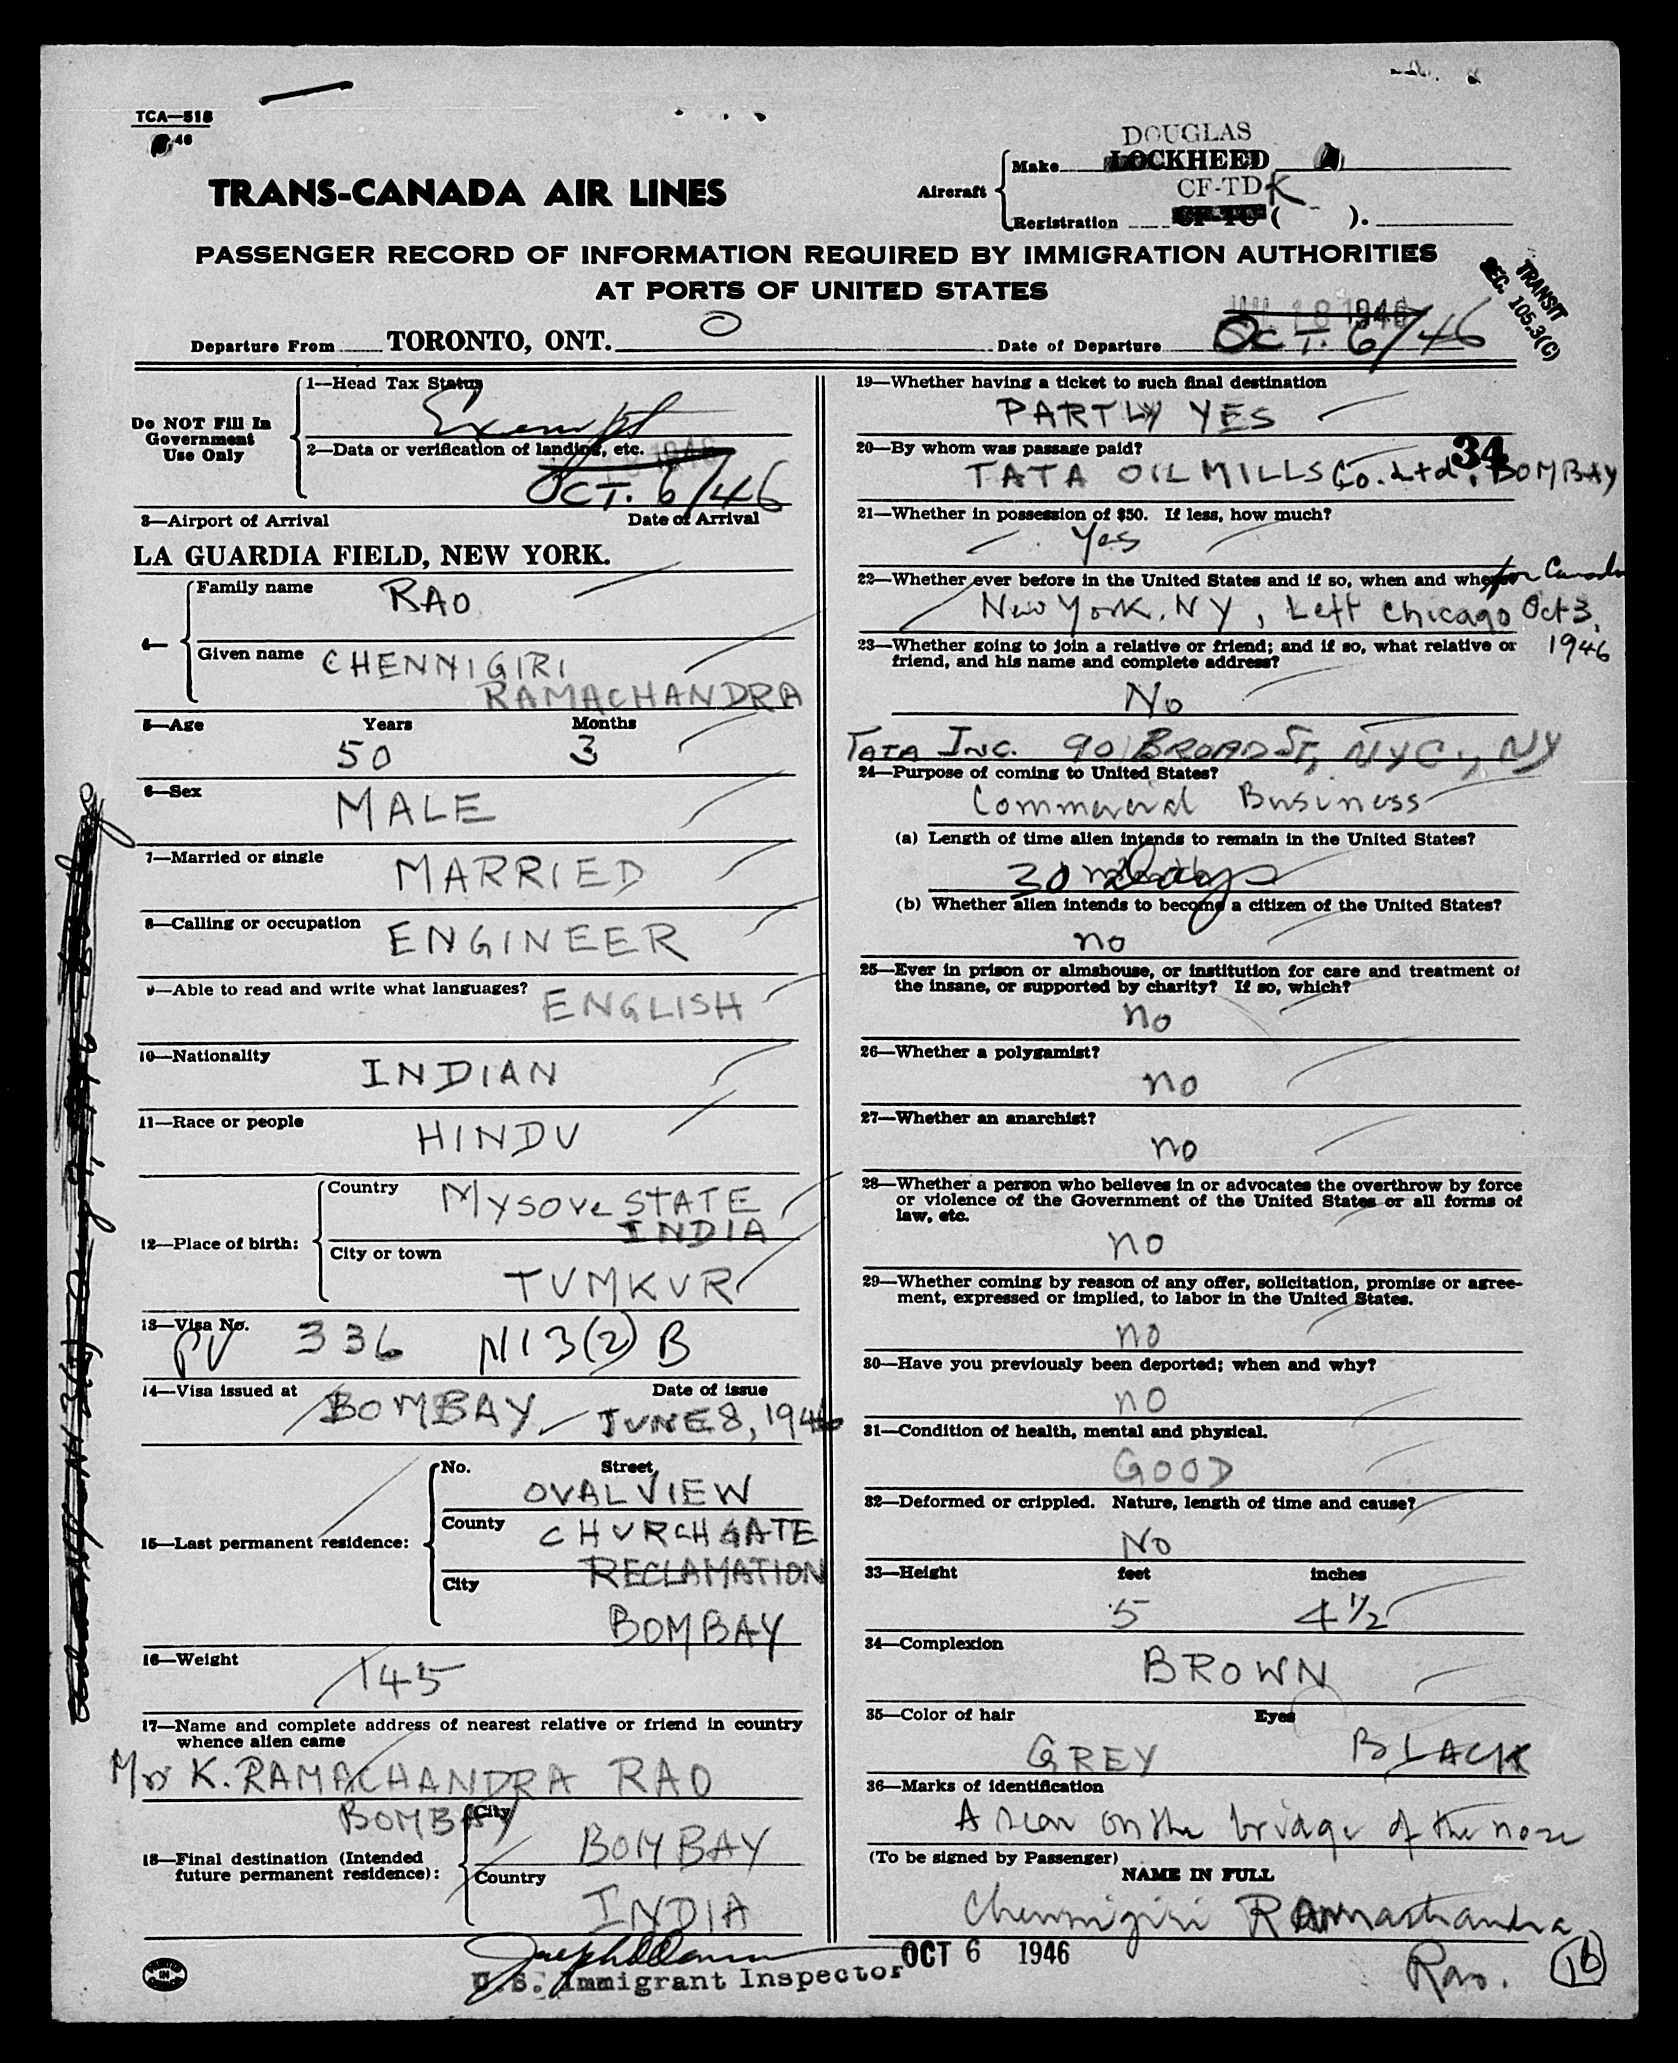 TCA—518
46
DOUGLAS
Make LOCKHEED
Aircraft
CF-TDK
Registration CF-TC ( ).
TRANS-CANADA AIR LINES
PASSENGER RECORD OF INFORMATION REQUIRED BY IMMIGRATION AUTHORITIES
AT PORTS OF UNITED STATES
TRANSIT
SEC. 105.3(C)
18 1946
Departure From TORONTO, ONT. Date of Departure OCT. 6/46
Do NOT Fill In
Government
Use Only
1—Head Tax Status
Exempt
2—Data or verification of landing, etc.
1946
OCT. 6/46
3—Airport of Arrival Date of Arrival
LA GUARDIA FIELD, NEW YORK.
4—
Family name RAO
Given name CHENNIGIRI
RAMACHANDRA
5—Age Years Months
50 3
6—Sex
MALE
7—Married or single
MARRIED
8—Calling or occupation
ENGINEER
9—Able to read and write what languages?
ENGLISH
10—Nationality
INDIAN
11—Race or people
HINDU
12—Place of birth:
Country MYSORE STATE
INDIA
City or town
TUMKUR
13—Visa No.
PV 336 N13(2)B
14—Visa issued at Date of issue
BOMBAY JUNE 8, 1946
15—Last permanent residence:
No. Street
OVAL VIEW
County CHURCHGATE
RECLAMATION
City
BOMBAY
16—Weight
145
17—Name and complete address of nearest relative or friend in country
whence alien came
Mrs K. RAMACHANDRA RAO
BOMBAY
18—Final destination (Intended
future permanent residence):
City
BOMBAY
Country
INDIA
U.S. Immigrant Inspector
OCT 6 1946
19—Whether having a ticket to such final destination
PARTLY YES
20—By whom was passage paid?
34
TATA OIL MILLS Co. Ltd. BOMBAY
21—Whether in possession of $50. If less, how much?
Yes
22—Whether ever before in the United States and if so, when and where
for Canada
New York, NY, Left Chicago Oct 3,
1946
23—Whether going to join a relative or friend; and if so, what relative or
friend, and his name and complete address?
No
TATA INC. 90 BROAD ST, NYC., NY
24—Purpose of coming to United States?
Commercial Business
(a) Length of time alien intends to remain in the United States?
30 days
(b) Whether alien intends to become a citizen of the United States?
no
25—Ever in prison or almshouse, or institution for care and treatment of
the insane, or supported by charity? If so, which?
no
26—Whether a polygamist?
no
27—Whether an anarchist?
no
28—Whether a person who believes in or advocates the overthrow by force
or violence of the Government of the United States or all forms of
law, etc.
no
29—Whether coming by reason of any offer, solicitation, promise or agree-
ment, expressed or implied, to labor in the United States.
no
30—Have you previously been deported; when and why?
no
31—Condition of health, mental and physical.
GOOD
32—Deformed or crippled. Nature, length of time and cause?
No
33—Height feet inches
5 4 1/2
34—Complexion
BROWN
35—Color of hair Eyes
GREY BLACK
36—Marks of identification
A scar on the bridge of the nose
(To be signed by Passenger)
NAME IN FULL
Chennigiri Ramachandra
Rao.
16